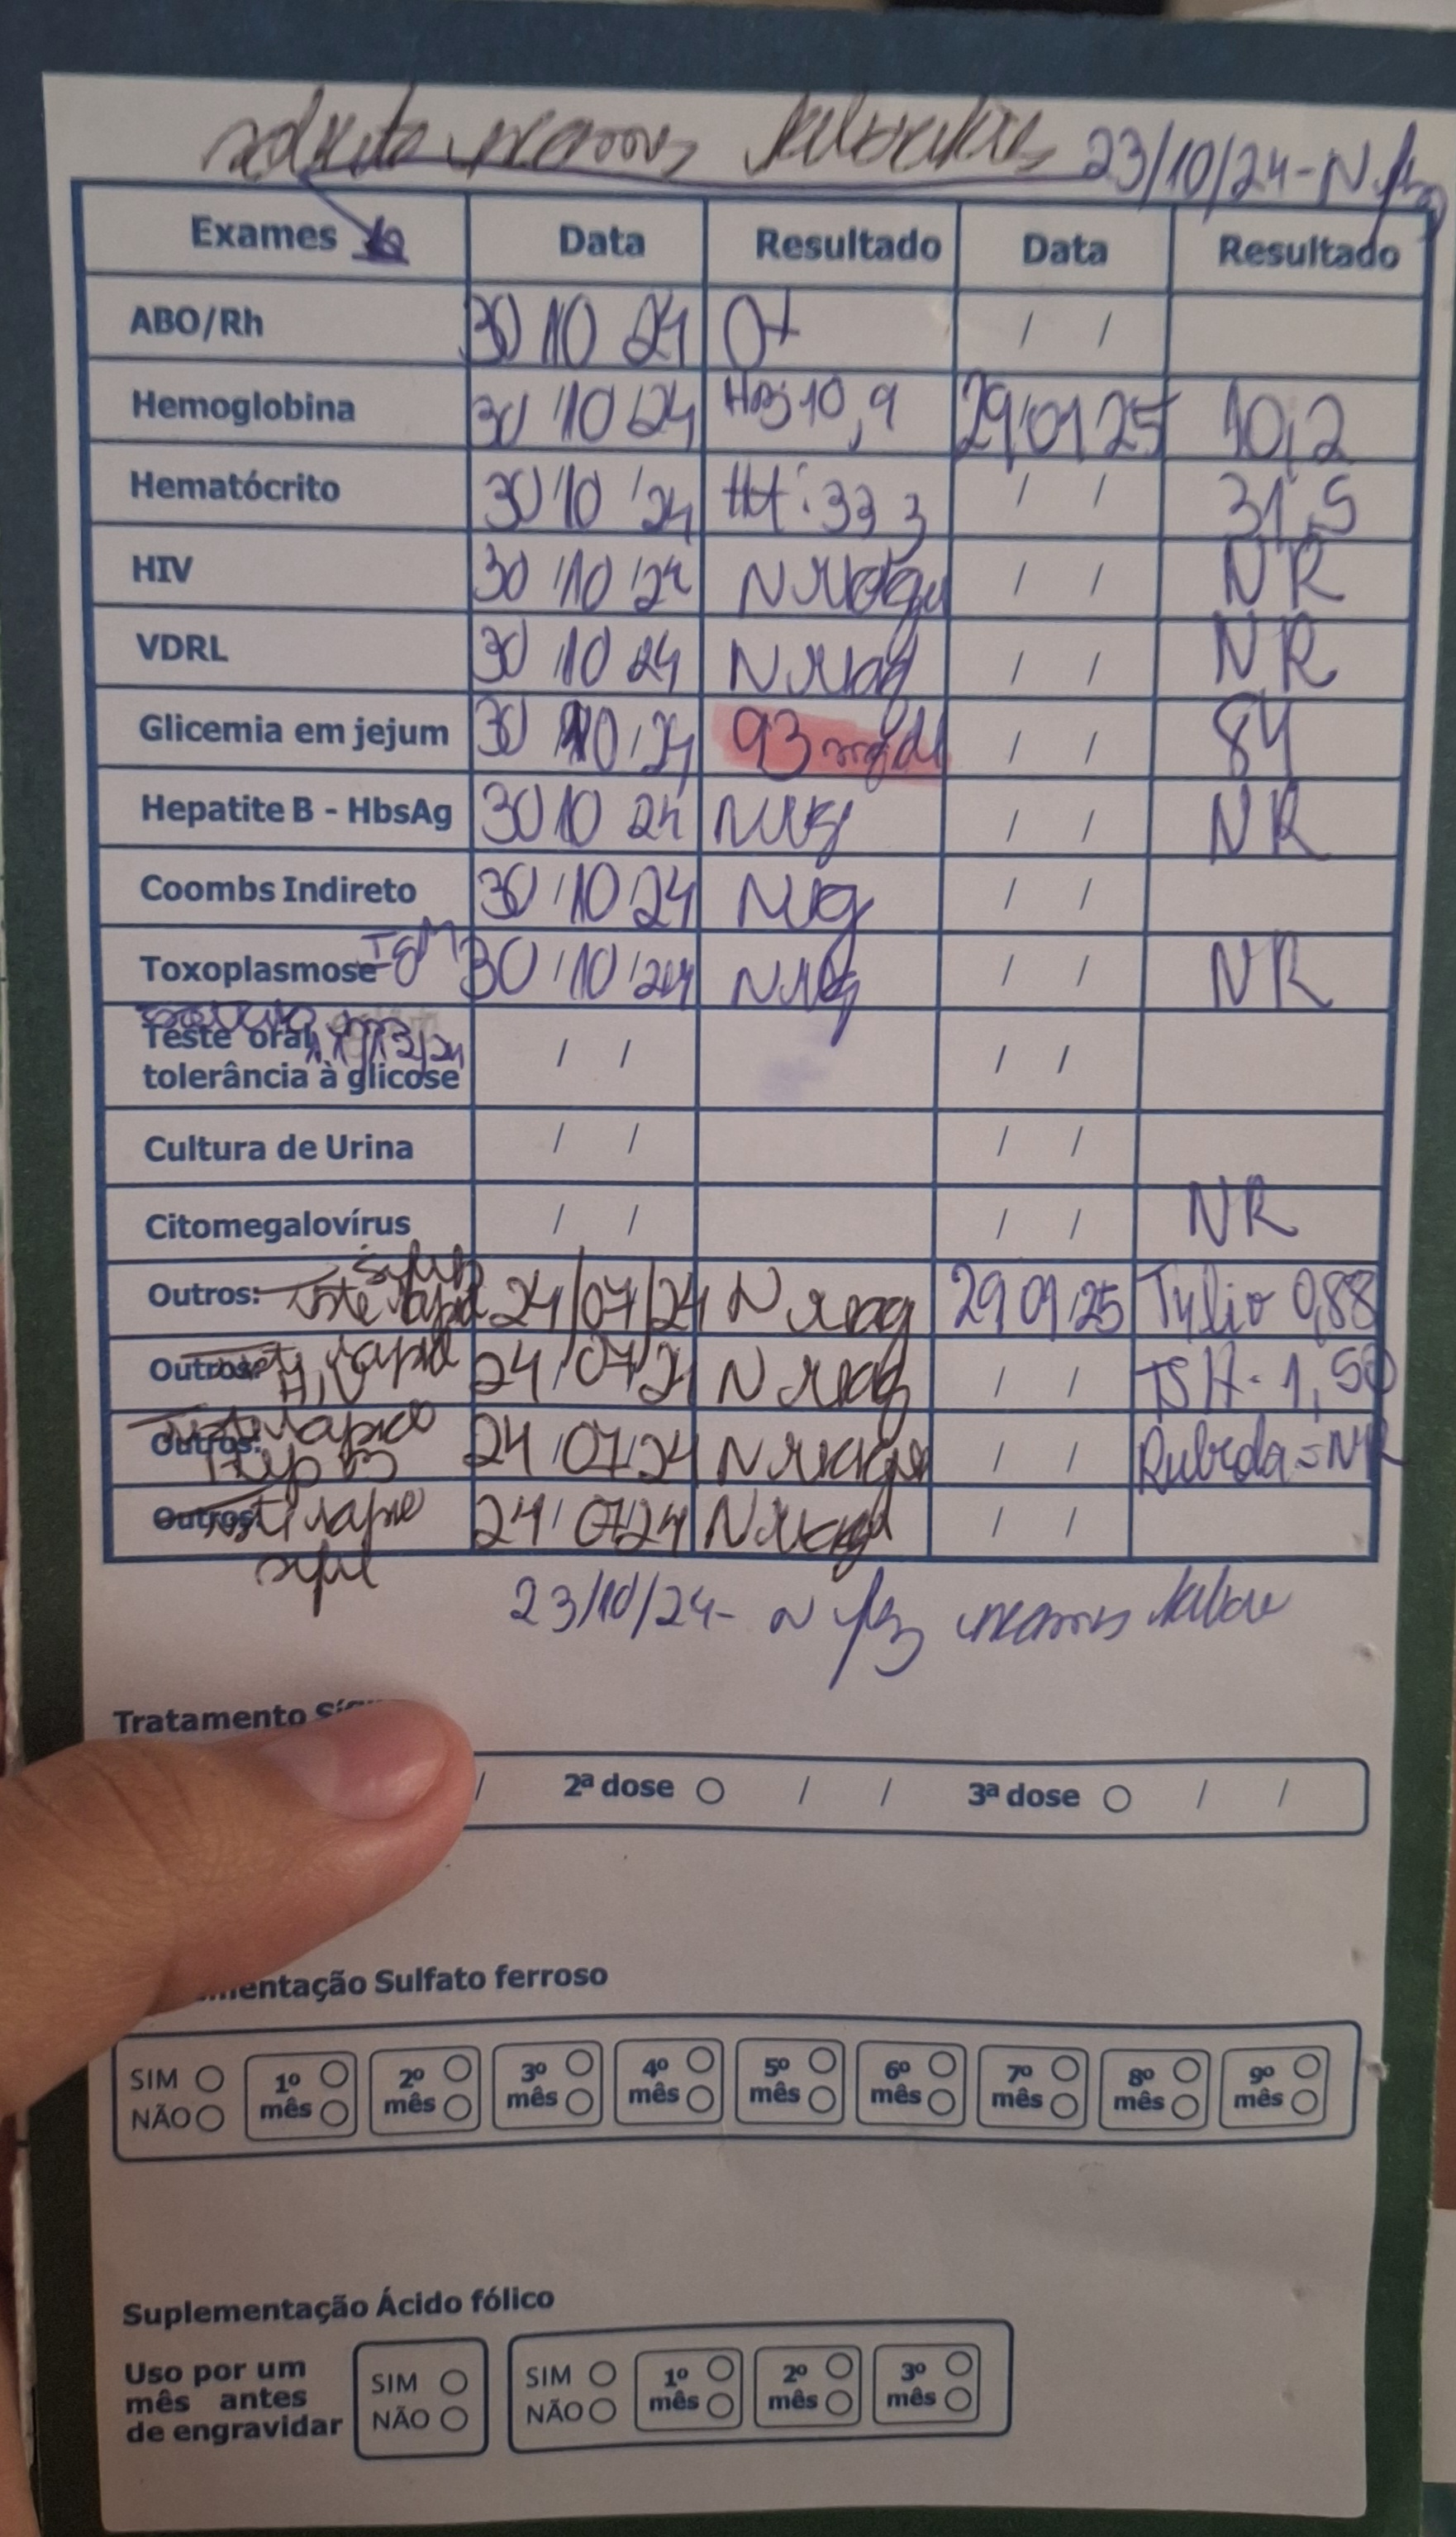 solicito exames laboratoriais 23/10/24 - N fez
Exames Data Resultado Data Resultado
ABO/Rh 30 10 24 O+ / /
Hemoglobina 30/10/24 Hb 10,9 29/01/25 10,2
Hematócrito 30/10/24 Ht: 33 3 / / 31,5
HIV 30/10/24 N / / NR
VDRL 30/10/24 N / / NR
Glicemia em jejum 30/10/24 93 mg/dl / / 84
Hepatite B - HbsAg 30 10 24 / / NR
Coombs Indireto 30/10/24 / /
Toxoplasmose IgM 30/10/24 / / NR
Teste oral
tolerância à glicose / / / /
Cultura de Urina / / / /
Citomegalovírus / / / / NR
Outros: teste rapid 24/07/24 N reag 29 01/25 0,88
Outros: HIV rapid 24/07/2 N reag / / TSH - 1,50
Outros: Hep B 24/07/24 N / / = NR
Outros: rapid 24/07/24 N / /
23/10/24 - N fez exames
Tratamento
/ 2ª dose / / 3ª dose / /
mentação Sulfato ferroso
SIM 1º 2º 3º 4º 5º 6º 7º 8º 9º
NÃO mês mês mês mês mês mês mês mês mês
Suplementação Ácido fólico
Uso por um
mês antes
de engravidar
SIM
NÃO
SIM 1º 2º 3º
NÃO mês mês mês